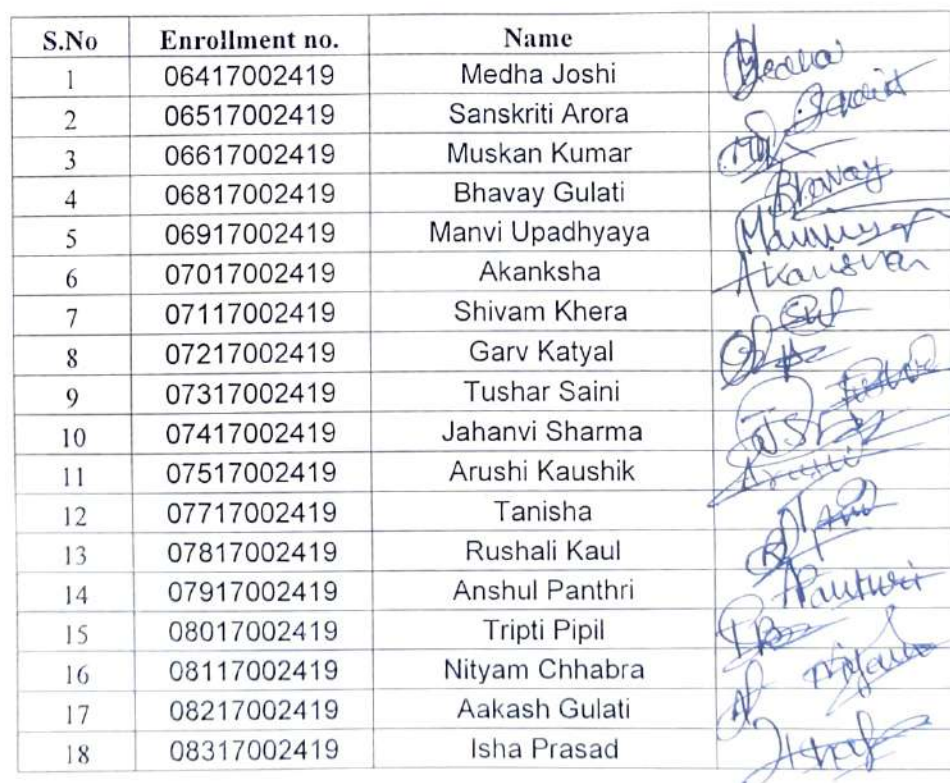 S.No Enrollment no. Name
1 06417002419 Medha Joshi Medha
2 06517002419 Sanskriti Arora
3 06617002419 Muskan Kumar
4 06817002419 Bhavay Gulati Bhavay
5 06917002419 Manvi Upadhyaya
6 07017002419 Akanksha
7 07117002419 Shivam Khera
8 07217002419 Garv Katyal
9 07317002419 Tushar Saini
10 07417002419 Jahanvi Sharma
11 07517002419 Arushi Kaushik
12 07717002419 Tanisha
13 07817002419 Rushali Kaul
14 07917002419 Anshul Panthri
15 08017002419 Tripti Pipil
16 08117002419 Nityam Chhabra
17 08217002419 Aakash Gulati
18 08317002419 Isha Prasad